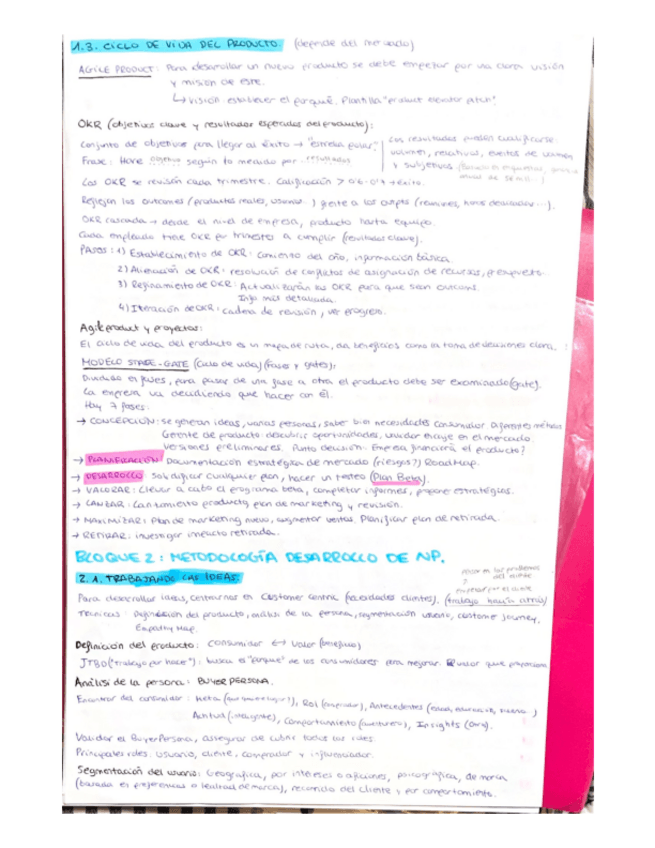 1.3. CICLO DE VIDA DEL PRODUCTO. (depende del mercado)
AGILE PRODUCT: Para desarrollar un nuevo producto se debe empezar por una clara visión
y misión de este.
↳ visión establecer el porqué. Plantilla "product elevator pitch".
OKR (objetivos clave y resultados esperados del producto):
Conjunto de objetivos para llegar al éxito → "estrella polar"
Frase: Haré objetivo según lo medido por resultados
Los resultados pueden cualificarse:
volumen, relativas, eventos de
y subjetivos
Los OKR se revisan cada trimestre. Calificación > 0.6-0.7 → éxito.
Reflejan los outcomes (productos reales, usuarios...) frente a los outputs (reuniones, horas
OKR cascada → desde el nivel de empresa, producto hasta equipo.
Cada empleado tiene OKR por trimestres a cumplir (resultados clave).
PASOS: 1) Establecimiento de OKR: comienzo del año, información básica.
2) Alineación de OKR: resolución de conflictos de asignación de recursos, presupuesto.
3) Refinamiento de OKR: Actualizarán los OKR para que sean outcoms.
Info más detallada.
4) Iteración de OKR: cadena de revisión, ver progreso.
Agile product y proyectos:
El ciclo de vida del producto es un mapa de ruta, da beneficios como la toma de decisiones clara.
MODELO STAGE-GATE (Ciclo de vida) (fases y gates):
Dividido en fases, para pasar de una fase a otra el producto debe ser examinado (gate).
La empresa va decidiendo que hacer con él.
Hay 7 fases:
→ CONCEPCIÓN: se generan ideas, varias personas, saber bien necesidades consumidor diferentes métodos
Gerente de producto: descubrir oportunidades, validar encaje en el mercado.
Versiones preliminares. Punto decisión: Empresa financiará el producto?
→ PLANIFICACIÓN: Documentación estratégica de mercado (riesgos?) RoadMap.
→ DESARROLLO: Solidificar cualquier plan, hacer un testeo (Plan Beta).
→ VALORAR: Llevar a cabo el programa beta, completar informes, propone estratégias.
→ LANZAR: Lanzamiento producto, plan de marketing y revisión.
→ MAXIMIZAR: Plan de marketing nuevo, aumentar ventas. Planificar plan de retirada.
→ RETIRAR: investigar impacto retirada.
BLOQUE 2: METODOLOGÍA DESARROLLO DE NP.
2.1. TRABAJANDO LAS IDEAS.
en los problemas
del cliente
empezar por el cliente
Para desarrollar ideas, centrarnos en Customer centric (necesidades clientes). (trabajo hacia atrás)
Técnicas: Definición del producto, análisis de la persona, segmentación usuario, costomer journey,
Empathy Map.
Definición del producto: consumidor ↔ valor (beneficio)
JTBD ("trabajo por hacer"): busca el "porque" de los consumidores para mejorar. El valor que proporciona
Análisis de la persona: BUYER PERSONA.
Encontrar del consumidor: Meta Rol (comprador), Antecedentes (edad, educación,
Actitud (inteligente), Comportamiento (aventurero), Insights
Validar el BuyerPersona, asegurar de cubrir todos los roles.
Principales roles: usuario, cliente, comprador y influenciador.
Segmentación del usuario: Geográfica, por intereses o aficiones, psicográfica, de marca
(basada en preferencias o lealtad de marca), recorrido del cliente y por comportamiento.